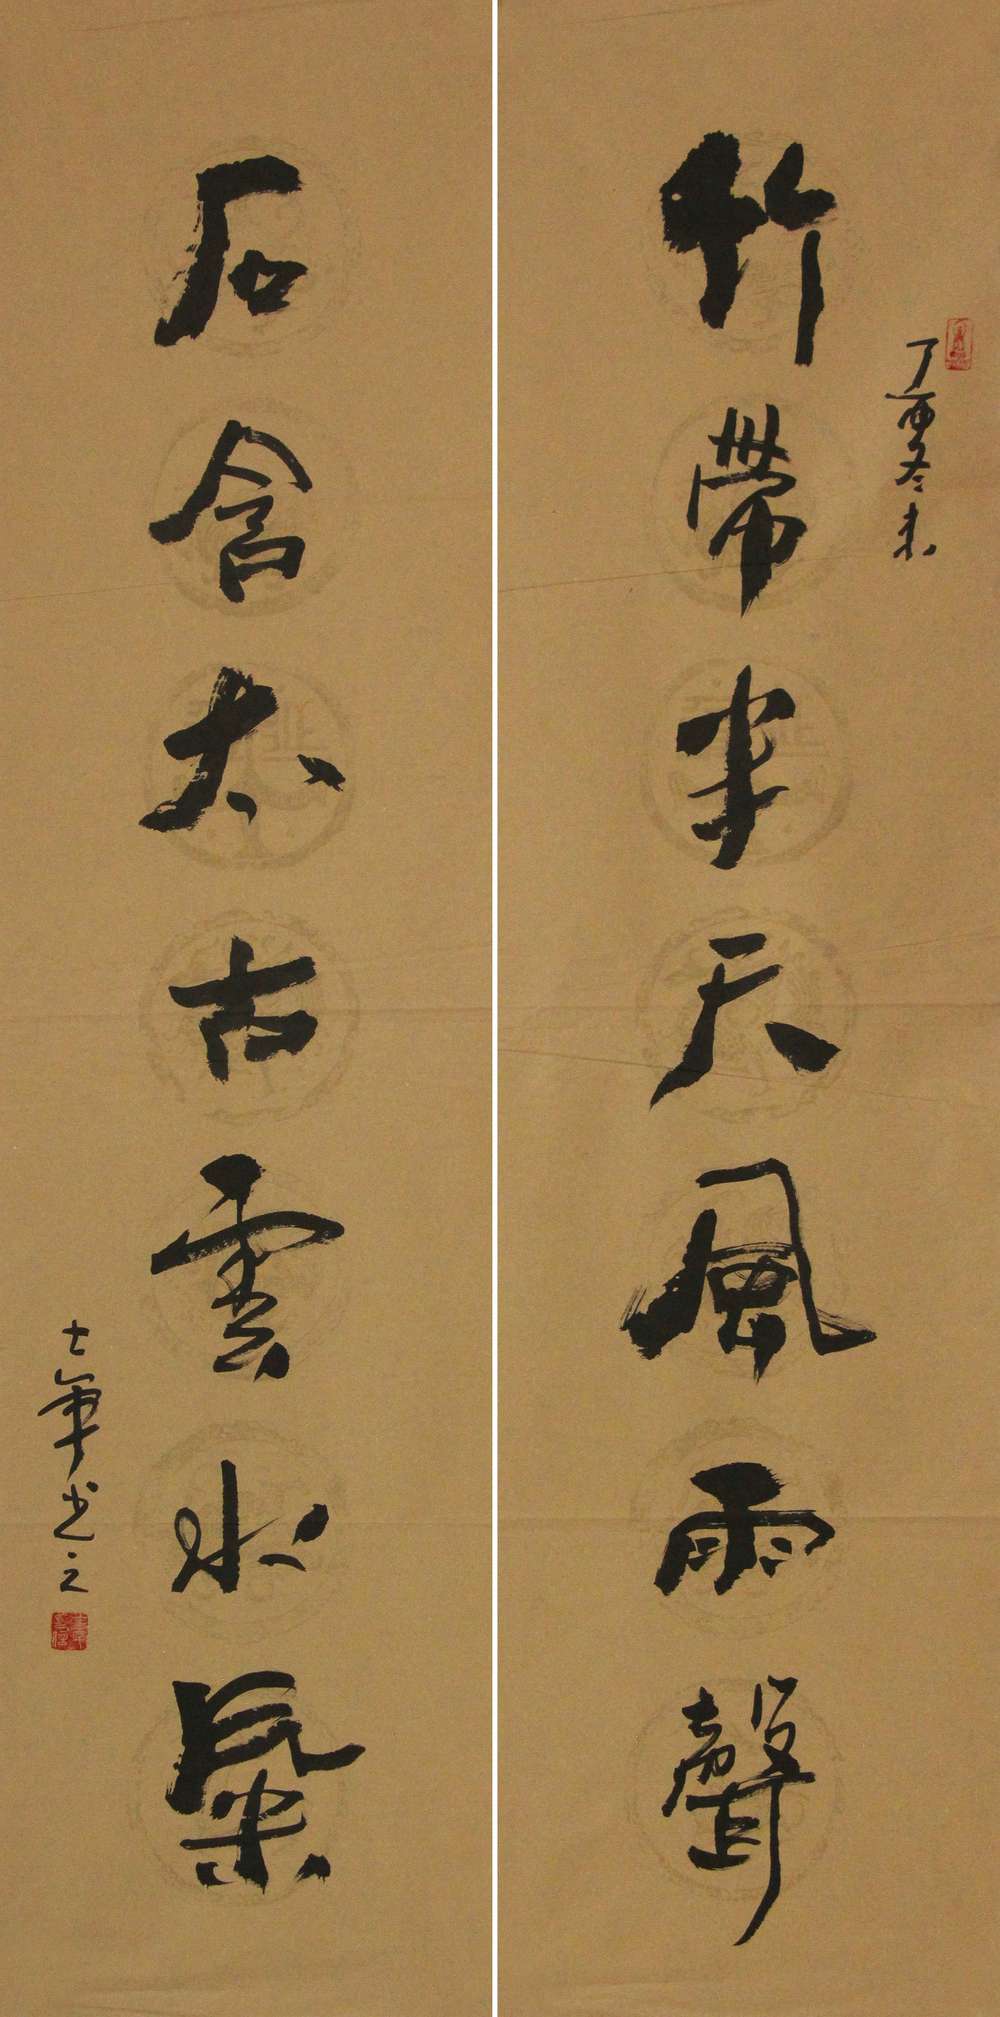 竹帶半天風雨聲
丁酉冬末
石含太古雲水氣
士軍书之